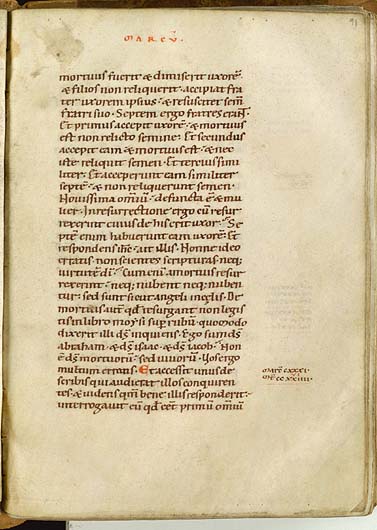 MARCV̄
91
mortuus fuerit & dimiserit uxorē
& filios non reliquerit. accipiat fra
ter uxorem ipsius. & resuscitet sem̄
fratri suo. Septem ergo fratres erant.
Et primus accepit uxorē. & mortuus
est non relicto semine. Et secundus
accepit eam & mortuus est. & nec
iste reliquit semen. Et tercius simi
liter. Et acceperunt eam similiter
septē. & non reliquerunt semen.
Nouissima omniū. defuncta ē & mu
lier. In resurrectione ergo cū resur
rexerint cuius de his erit uxor. Se
ptē enim habuerunt eam uxorē. Et
respondens ih̄c. ait illis. Nonne ideo
erratis. non scientes scripturas neq;
uirtutē dī. Cum enī a mortuis resur
rexerint. neq; nubent neq; nuben
tur. sed sunt sicut angeli in celis. De
mortuis aut̄ qd̄ resurgant non legis
tis in libro moysi sup̄ rubū. quomodo
dixerit illi dī inquiens. Ego sum dī
abraham. & dī isaac. & dī iacob. Non
ē dī mortuorū. sed uiuorū. Vos ergo
multum erratis. Et accessit unus de
scribis qui audierat illos conquiren
tes. & uidens qm̄ bene illis responderit.
interrogauit eū qd̄ eēt primū omniū
MARC̄ CXXXI.